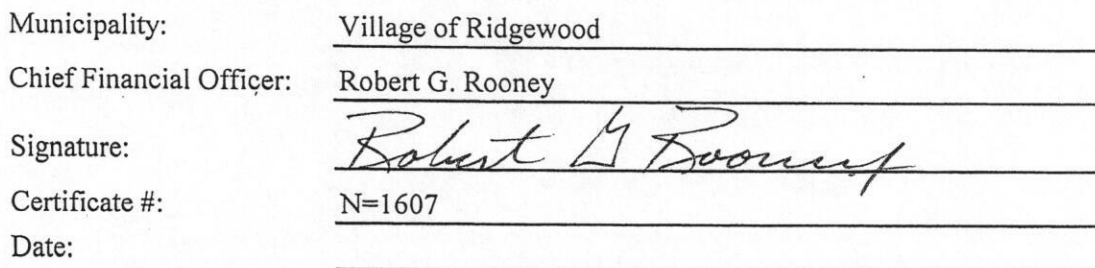 Municipality: Village of Ridgewood
Chief Financial Officer: Robert G. Rooney
Signature: Robert G Rooney
Certificate #: N=1607
Date: